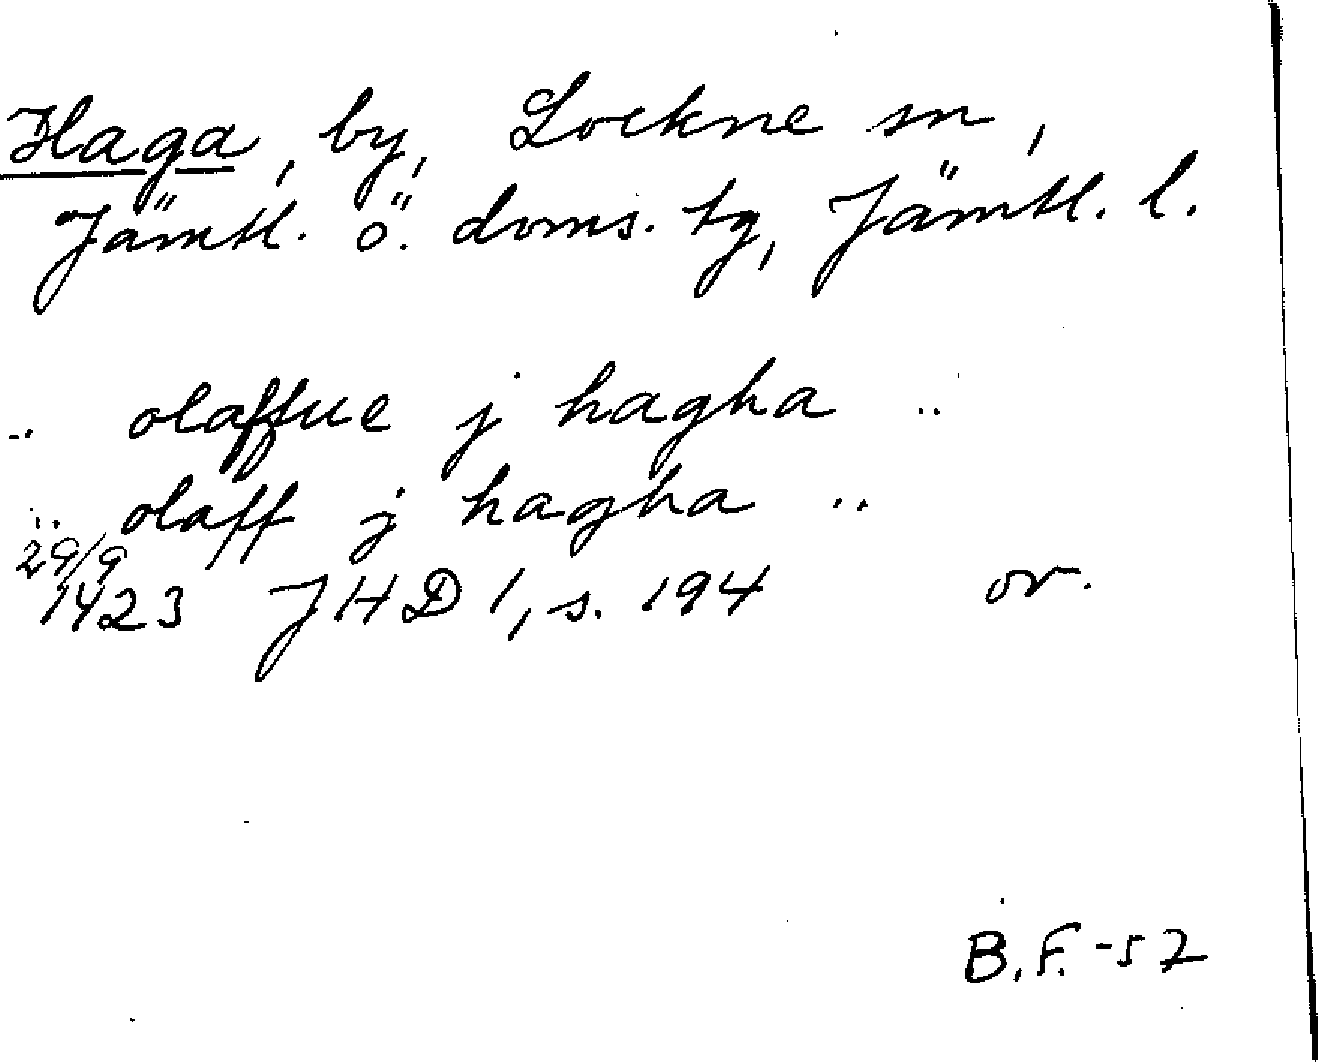 Haga, by, Lockne sn,
Jämtl. ö. doms. tg, Jämtl. l.
.. olaffue j hagha ..
.. olaff j hagha ..
29/9
1423 JHD 1, s. 194 or.
B.F. -52